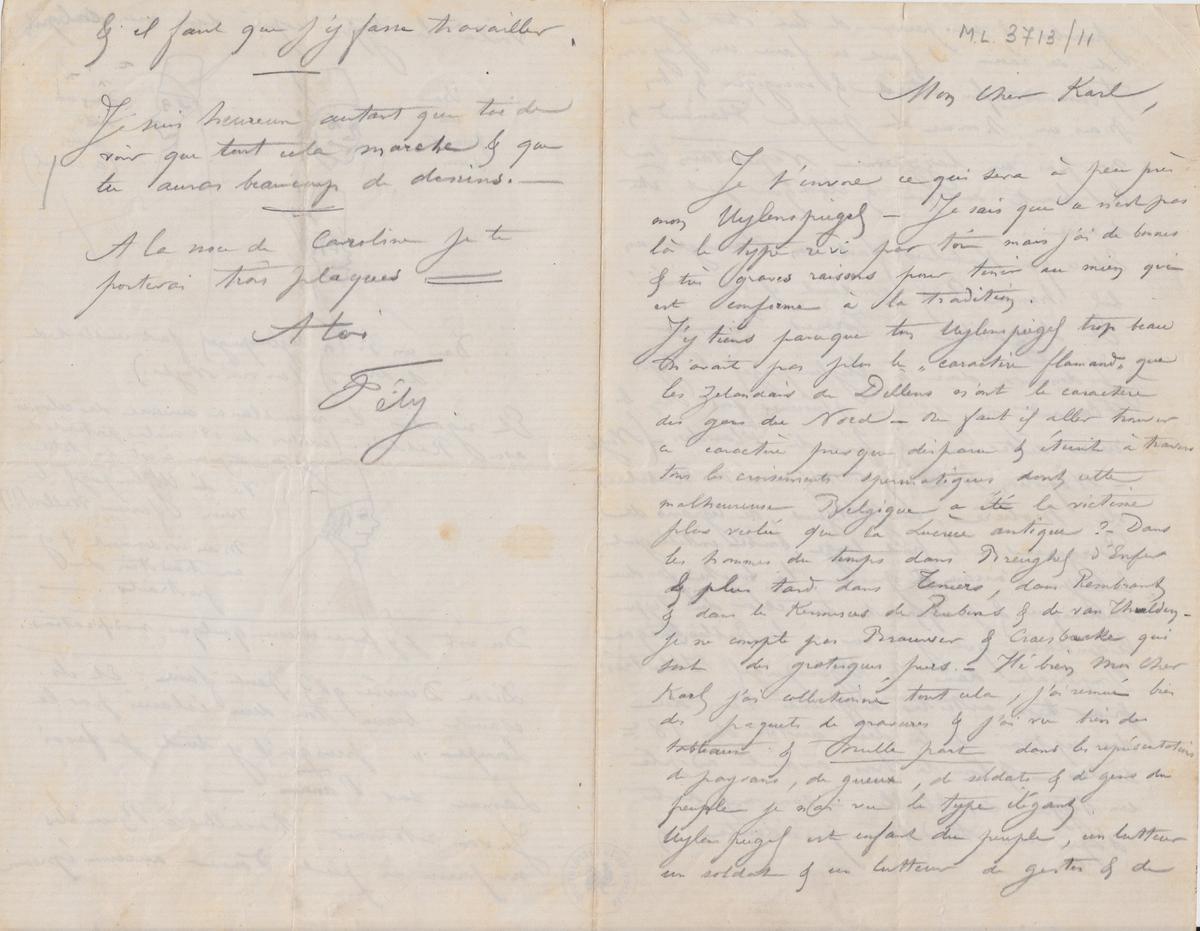 & il faut que j'y fasse travailler.
Je suis heureux autant que toi de
voir que tout cela marche & que
tu auras beaucoup de dessins. —
A la noce de Caroline je te
porterai trois plaques
A toi
Fély
M.L. 3713/11
Mon cher Karl,
Je t'envoie ce qui sera à peu près
mon Uylenspiegel — Je sais que ce n'est pas
là le type rêvé par toi mais j'ai de bonnes
& très graves raisons pour tenir au mien qui
est conforme à la tradition.
J'y tiens parceque ton Uylenspiegel trop beau
n'avait pas plus le "caractère flamand" que
les Zélandais de Dillens n'ont le caractère
des gens du Nord — Où faut il aller trouver
ce caractère presque disparu & éteint à travers
tous les croisements spermatiques dont cette
malheureuse Belgique a été la victime
plus violée que la Lucrèce antique ? — Dans
les hommes du temps dans Breughel d'Enfer
& plus tard dans Teniers, dans Rembrandt
& dans les Kermesses de Rubens & de van Thulden —
je ne compte pas Brauwer & Craesbecke qui
sont des grotesques purs. — Hé bien mon cher
Karl j'ai collectionné tout cela, j'ai remué bien
des paquets de gravures & j'ai vu bien des
tableaux & nulle part dans les représentations
de paysans, de gueux, de soldats & de gens du
peuple je n'ai vu le type élégant.
Uylenspiegel est enfant du peuple, un lutteur
un soldat & un lutteur de gestes & de